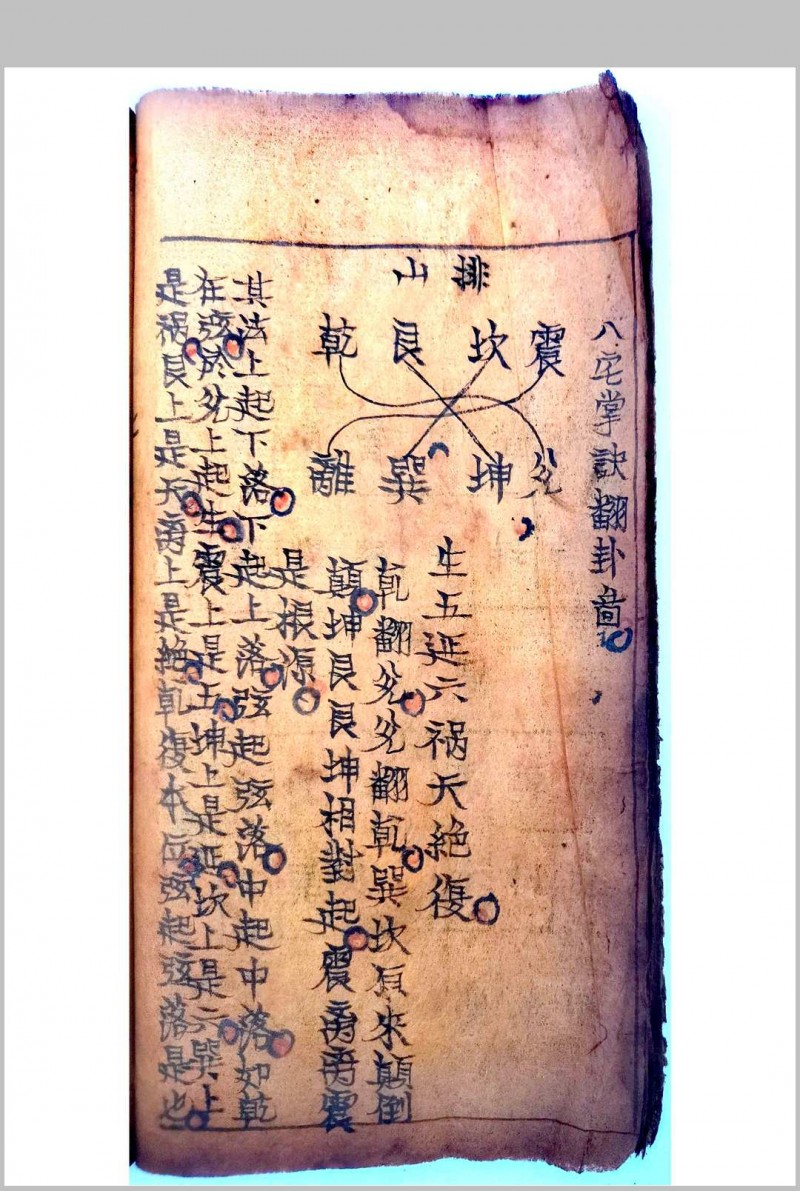 八宅掌訣翻卦啚
排山
震坎艮乾
兌坤巽離
生五延六祸天絶復
乾翻兊兊翻乾巽坎原來顛倒
顛坤艮艮坤相對起震离离震
是根源
其法上起下落下起上落弦起弦落中起中落如乾
在弦於兊上起生震上是五坤上是延坎上是六巽上
是祸艮上是天离上是絶乾復本位弦起弦落是也